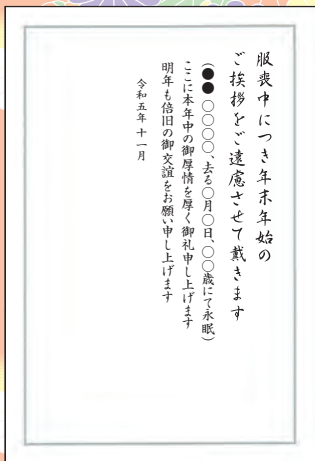 服喪中につき年末年始の
ご挨拶をご遠慮させて戴きます
(●● ○○○○、去る○月○日、○○歳にて永眠)
ここに本年中の御厚情を厚く御礼申し上げます
明年も倍旧の御交誼をお願い申し上げます
令和五年十一月